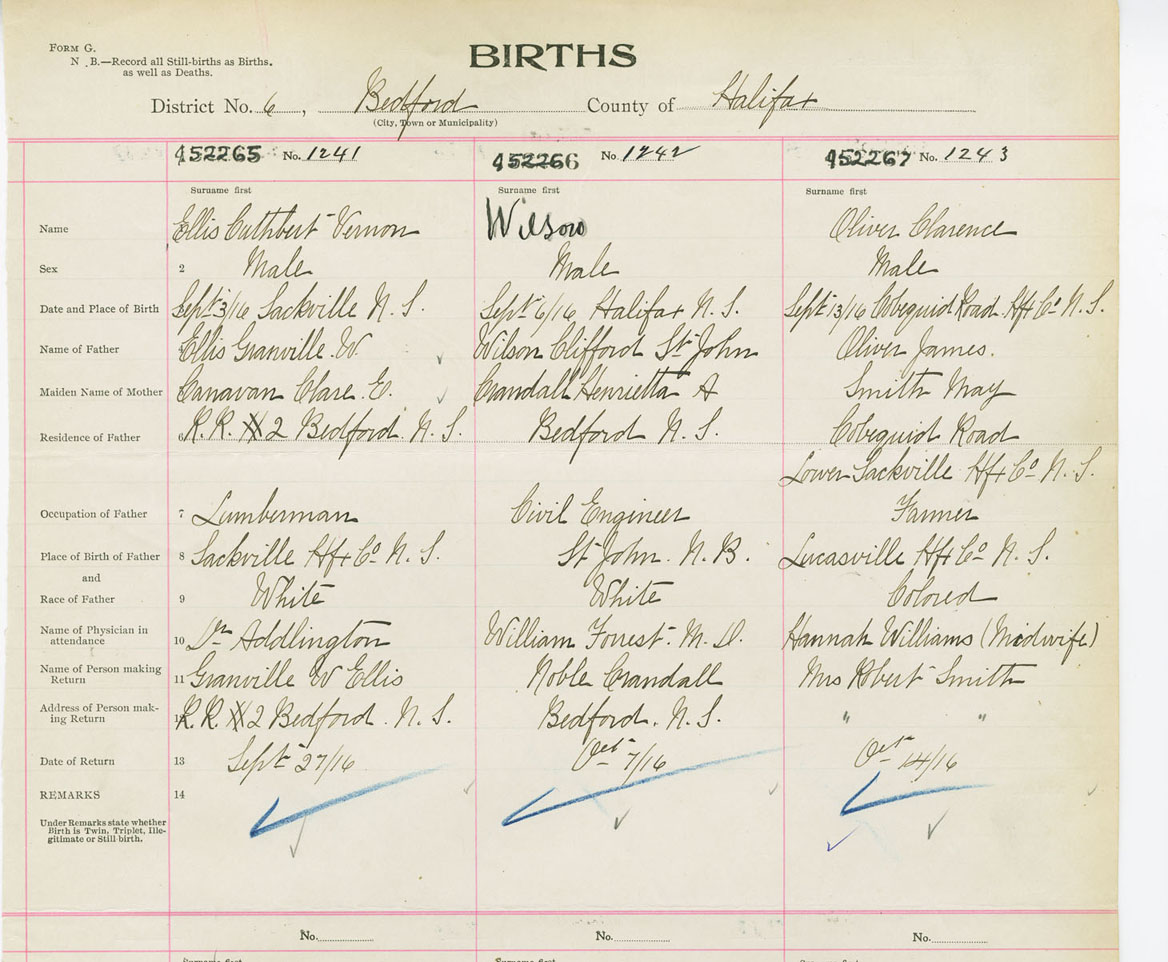 FORM G.
N. B.—Record all Still-births as Births.
as well as Deaths.
BIRTHS
District No. 6, Bedford County of Halifax
(City, Town or Municipality)
452265 No. 1241 452266 No. 1242 452267 No. 1243
Surname first Surname first Surname first
Name Ellis Cuthbert Vernon Wilson Oliver Clarence
Sex 2 Male Male Male
Date and Place of Birth Sept 3/16 Sackville N. S. Sept 6/16 Halifax N. S. Sept 13/16 Cobequid Road Hfx Co N. S.
Name of Father Ellis Granville W. Wilson Clifford St John Oliver James.
Maiden Name of Mother Canavan Clare E. Crandall Henrietta A Smith May
Residence of Father 6 R. R. # 2 Bedford N. S. Bedford N. S. Cobequid Road
Lower Sackville Hfx Co N. S.
Occupation of Father 7 Lumberman Civil Engineer Farmer
Place of Birth of Father 8 Sackville Hfx Co N. S. St John. N. B. Lucasville Hfx Co N. S.
and
Race of Father 9 White White Colored
Name of Physician in
attendance 10 Dr Addlington William Forrest. M. D. Hannah Williams (Midwife)
Name of Person making
Return 11 Granville W Ellis Noble Crandall Mrs Robert Smith
Address of Person mak-
ing Return R. R. # 2 Bedford. N. S. Bedford. N. S. " "
Date of Return 13 Sept 27/16 Oct 7/16 Oct 14/16
REMARKS 14
Under Remarks state whether
Birth is Twin, Triplet, Ille-
gitimate or Still-birth.
No. No. No.
Surname first Surname first Surname first